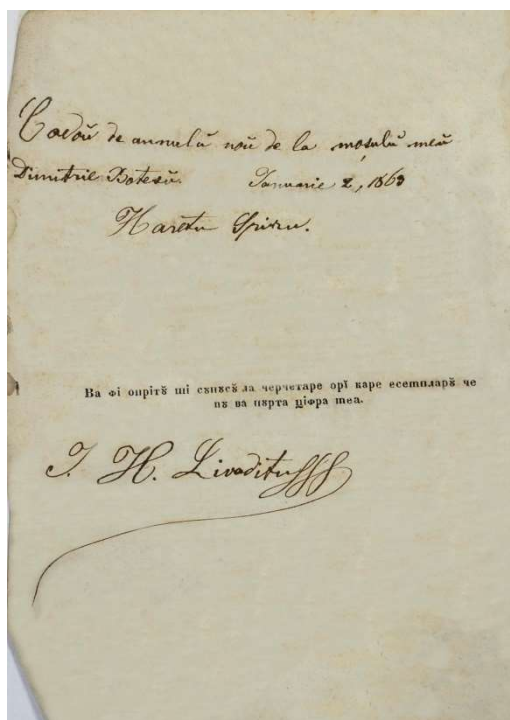 Cadoŭ de annulŭ noŭ de la moșulŭ meŭ
Dimitrie Botescu. Ianuarie 2, 1863
Haretu Spiru.
Ва фі опрітꙋ̆ ші сꙋпꙋсꙋ̆ ла черчетаре орĭ каре есемпларꙋ̆ че
nꙋ ва пꙋрта ціфра mea.
I. H. Livaditu